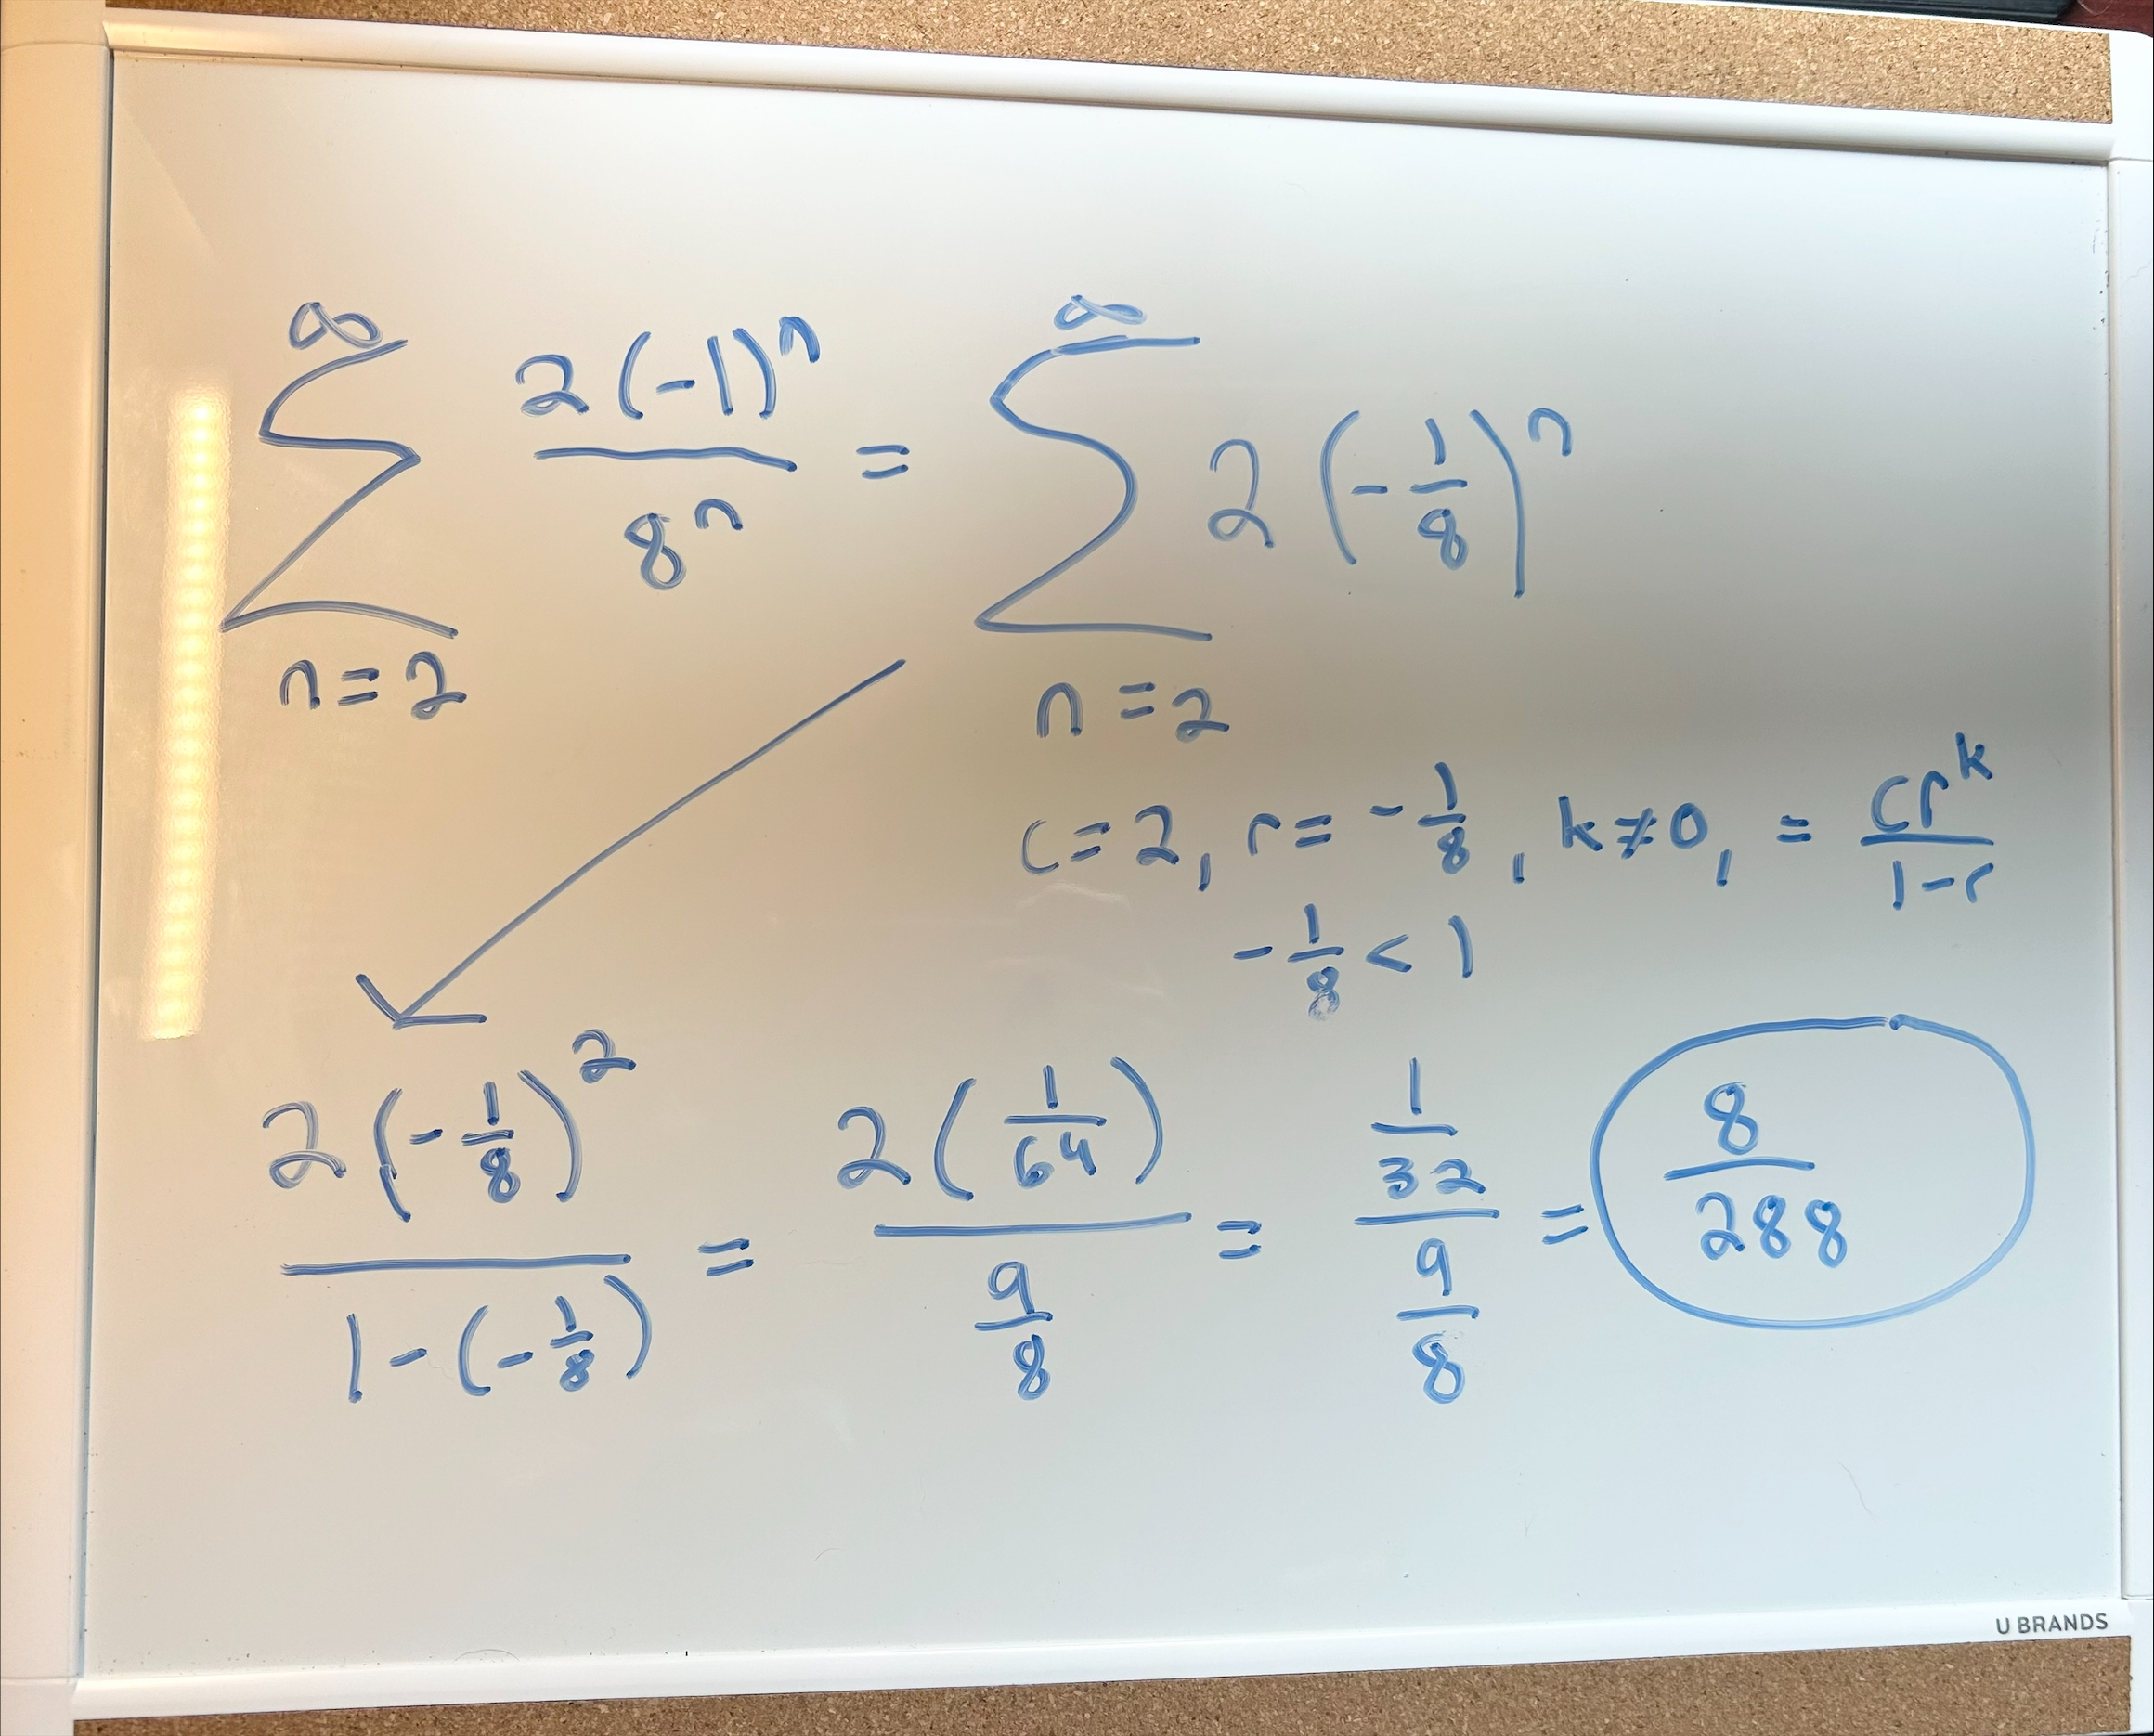 ∞ ∑ n=2 2(-1)ⁿ / 8ⁿ = ∞ ∑ n=2 2(-1/8)ⁿ
c=2, r=-1/8, k≠0, = crᵏ / 1-r
-1/8 < 1
2(-1/8)² / 1-(-1/8) = 2(1/64) / 9/8 = 1/32 / 9/8 = 8/288
U BRANDS